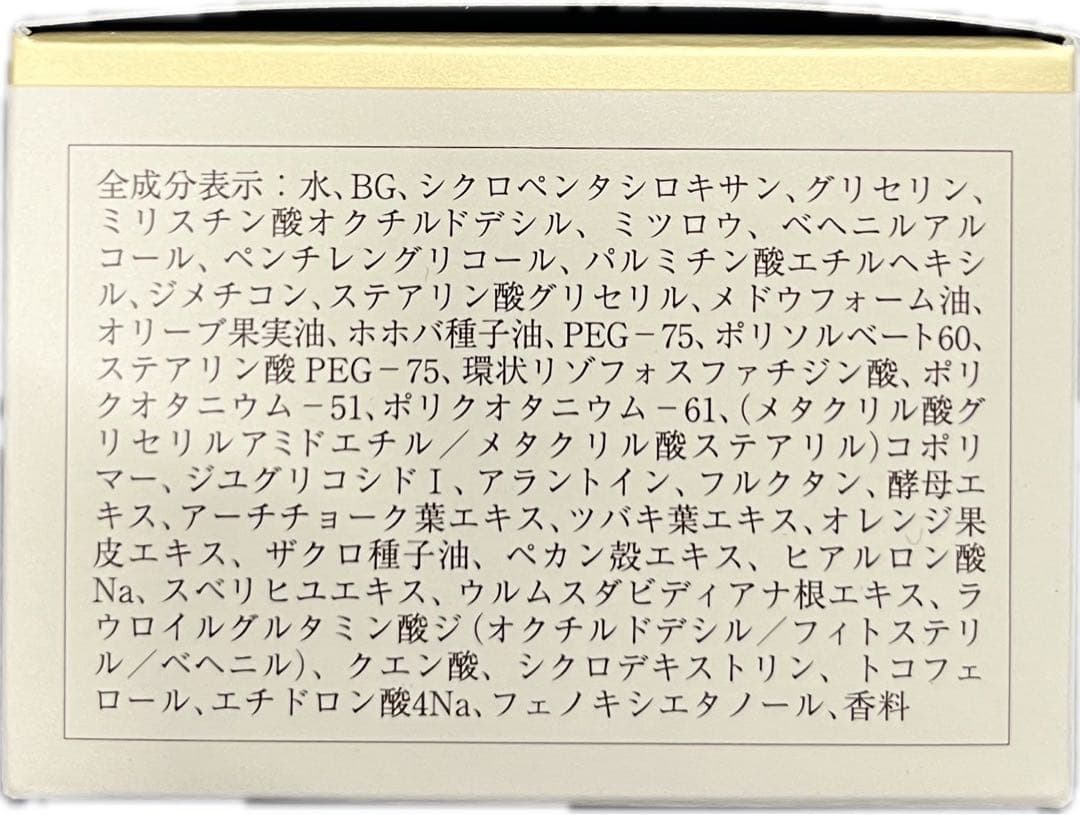 全成分表示：水、BG、シクロペンタシロキサン、グリセリン、
ミリスチン酸オクチルドデシル、ミツロウ、ベヘニルアル
コール、ペンチレングリコール、パルミチン酸エチルヘキシ
ル、ジメチコン、ステアリン酸グリセリル、メドウフォーム油、
オリーブ果実油、ホホバ種子油、PEG－75、ポリソルベート60、
ステアリン酸PEG－75、環状リゾフォスファチジン酸、ポリ
クオタニウム－51、ポリクオタニウム－61、（メタクリル酸グ
リセリルアミドエチル／メタクリル酸ステアリル）コポリ
マー、ジユグリコシドⅠ、アラントイン、フルクタン、酵母エ
キス、アーチチョーク葉エキス、ツバキ葉エキス、オレンジ果
皮エキス、ザクロ種子油、ペカン殻エキス、ヒアルロン酸
Na、スベリヒユエキス、ウルムスダビディアナ根エキス、ラ
ウロイルグルタミン酸ジ（オクチルドデシル／フィトステリ
ル／ベヘニル）、クエン酸、シクロデキストリン、トコフェ
ロール、エチドロン酸4Na、フェノキシエタノール、香料